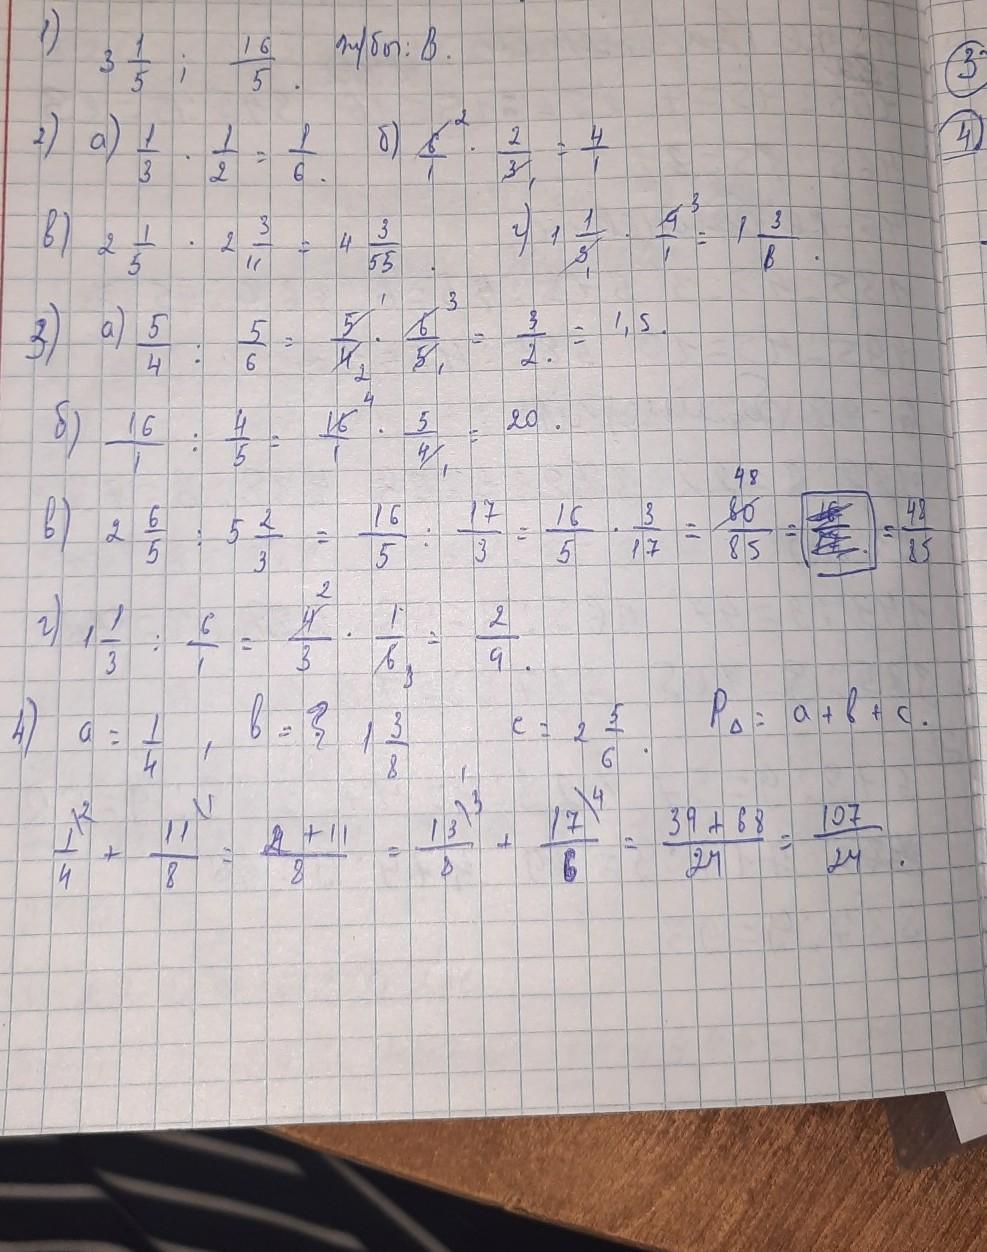 1) 3 1/5 ; 16/5 . : В.
2) а) 1/3 · 1/2 = 1/6 . б) 6/1 2 · 2/3 1 = 4/1
в) 2 1/5 · 2 3/11 = 4 3/55 . г) 1 1/3 1 · 9/1 3 = 1 3/1 .
3) а) 5/4 : 5/6 = 5/4 1 2 · 6/5 3 1 = 3/2 . = 1,5.
б) 16/1 : 4/5 = 16/1 4 · 5/4 1 = 20 .
в) 2 6/5 : 5 2/3 = 16/5 : 17/3 = 16/5 · 3/17 = 48 80/85 = = 48/85
г) 1 1/3 : 6/1 = 4/3 2 · 1/6 3 = 2/9 .
4) a = 1/4 , b = ? 1 3/8 c = 2 5/6 . P△ = a + b + c .
1/4 \2 + 11/8 \1 = 2 + 11/8 = 13/8 \3 + 17/6 \4 = 39 + 68/24 = 107/24 .
3
4)